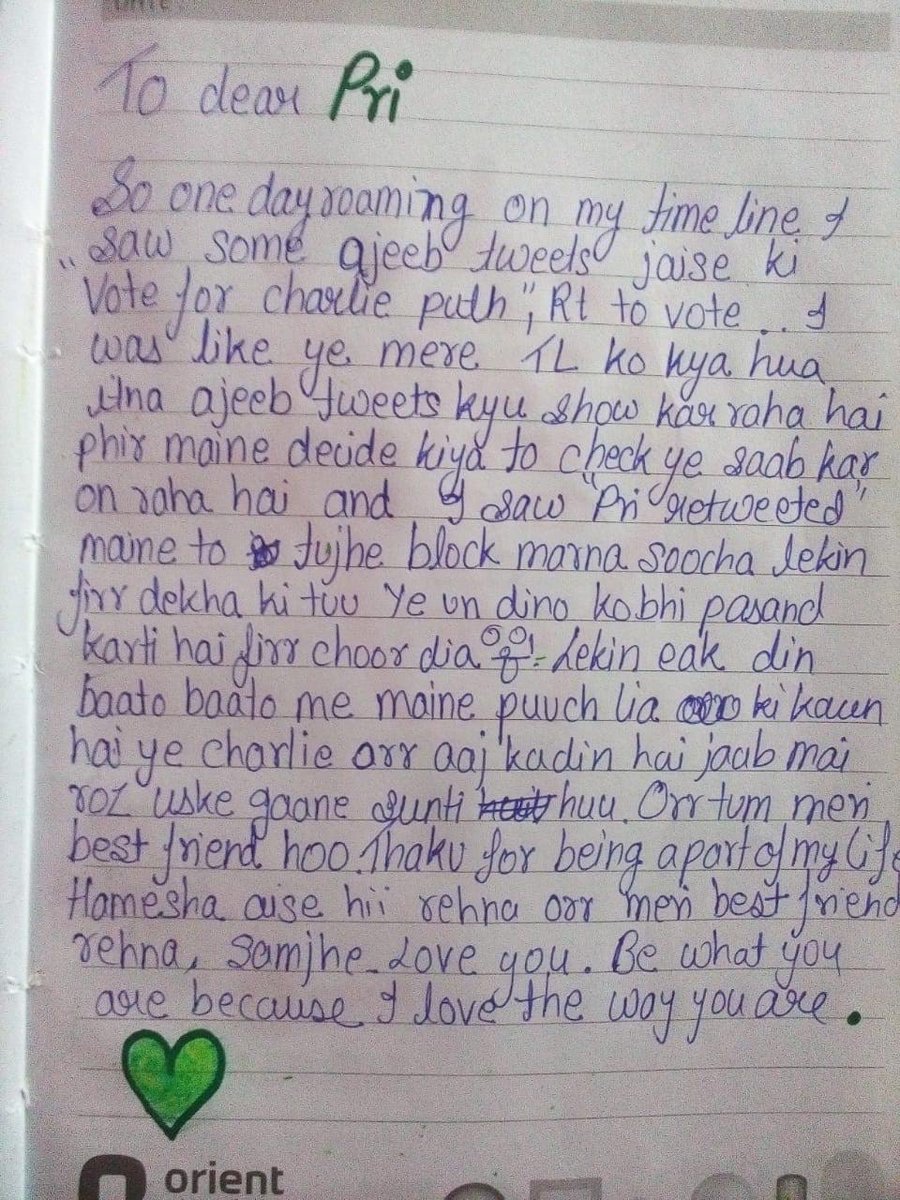 To dear Pri
So one day roaming on my time line I
saw some ajeeb tweets jaise ki
"Vote for charlie puth", Rt to vote .. I
was like ye mere TL ko kya hua
itna ajeeb tweets kyu show kar raha hai
phir maine decide kiya to check ye saab kar
on raha hai and I saw "Pri retweeted"
maine to tujhe block marna soocha lekin
firr dekha ki tuu ye un dino ko bhi pasand
karti hai firr choor dia Lekin eak din
baato baato me maine puuch lia ki kaun
hai ye charlie orr aaj kadin hai jaab mai
roz uske gaane sunti huu. Orr tum meri
best friend hoo. Thaku for being apart of my life
Hamesha aise hii rehna orr meri best friend
rehna, Samjhe. Love you. Be what you
are because I love the way you are.
orient